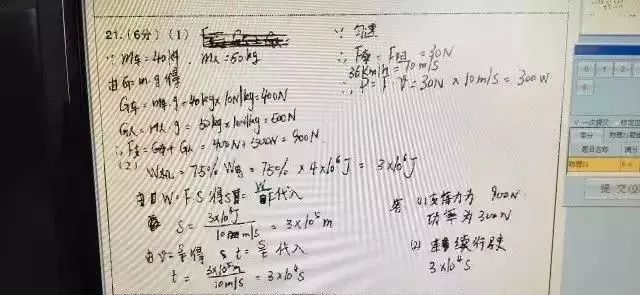 21.(6分)(1)
∵ m车=40kg , m人=50kg
由G=m·g得
G车=m车·g=40kg×10N/kg=400N
G人=m人·g=50kg×10N/kg=500N
∴F支=G车+G人=400N+500N=900N
(2)
W机=75%W电=75%×4×10⁶J=3×10⁶J
由W=F·S得S=W/F代入
S=3×10⁶J/10m/s=3×10⁵m
由v=s/t得 t=s/v代入
t=3×10⁵m/10m/s=3×10⁴s
∵匀速
∴F牵=F阻=30N
36km/h=10m/s
∴P=F·v=30N×10m/s=300W
答:(1)支持力为900N
功率为300W
(2)续行驶
3×10⁴s
0 1 2
6
一次提交
零分
题目名称 满分
物理21 6.0
提交(Q